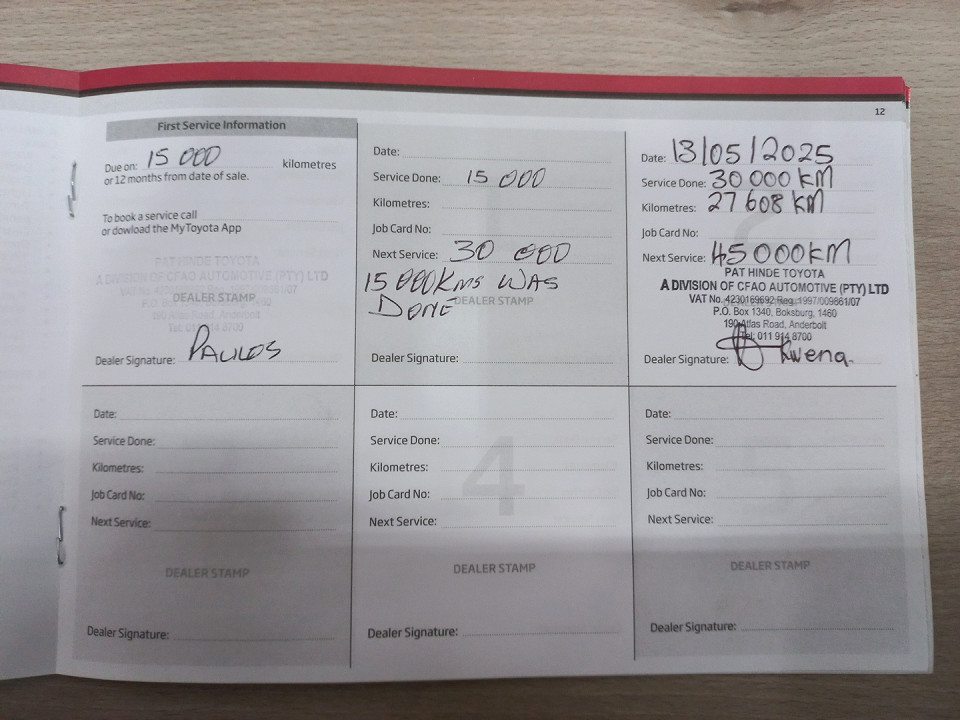 12
First Service Information
Due on: 15 000 kilometres
or 12 months from date of sale.
To book a service call
or dowload the MyToyota App
PAT HINDE TOYOTA
A DIVISION OF CFAO AUTOMOTIVE (PTY) LTD
DEALER STAMP
190 Atlas Road, Anderbolt
Tel: 011 914 8700
Dealer Signature: PAULOS
Date:
Service Done: 15 000
Kilometres:
Job Card No:
Next Service: 30 000
15 000Kms WAS
DONE
DEALER STAMP
Dealer Signature:
Date: 13/05/2025
Service Done: 30 000 KM
Kilometres: 27 608 KM
Job Card No:
Next Service: 45 000KM
PAT HINDE TOYOTA
A DIVISION OF CFAO AUTOMOTIVE (PTY) LTD
VAT No. 4230169692 Reg. 1997/009861/07
P.O. Box 1340, Boksburg, 1460
190 Atlas Road, Anderbolt
Tel: 011 914 8700
Dealer Signature: Kwena.
Date:
Service Done:
Kilometres:
Job Card No:
Next Service:
DEALER STAMP
Dealer Signature:
Date:
Service Done:
Kilometres:
4
Job Card No:
Next Service:
DEALER STAMP
Dealer Signature:
Date:
Service Done:
Kilometres:
Job Card No:
Next Service:
DEALER STAMP
Dealer Signature: